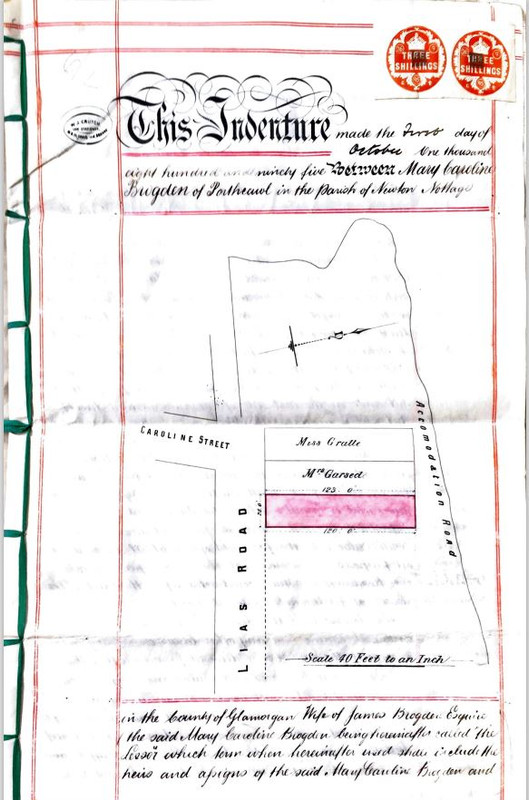 THREE SHILLINGS
THREE SHILLINGS
This Indenture made the First day of
October One thousand
eight hundred and ninety five Between Mary Caroline
Brogden of Porthcawl in the Parish of Newton Nottage
CAROLINE STREET
Miss Gratte
Mrs Garsed
123. 0"
120. 0"
LIAS ROAD
Accomodation Road
Scale 40 Feet to an Inch
in the County of Glamorgan Wife of James Brogden Esquire
the said Mary Caroline Brogden being hereinafter called "the
Lessor" which term when hereinafter used shall include the
heirs and assigns of the said Mary Caroline Brogden and